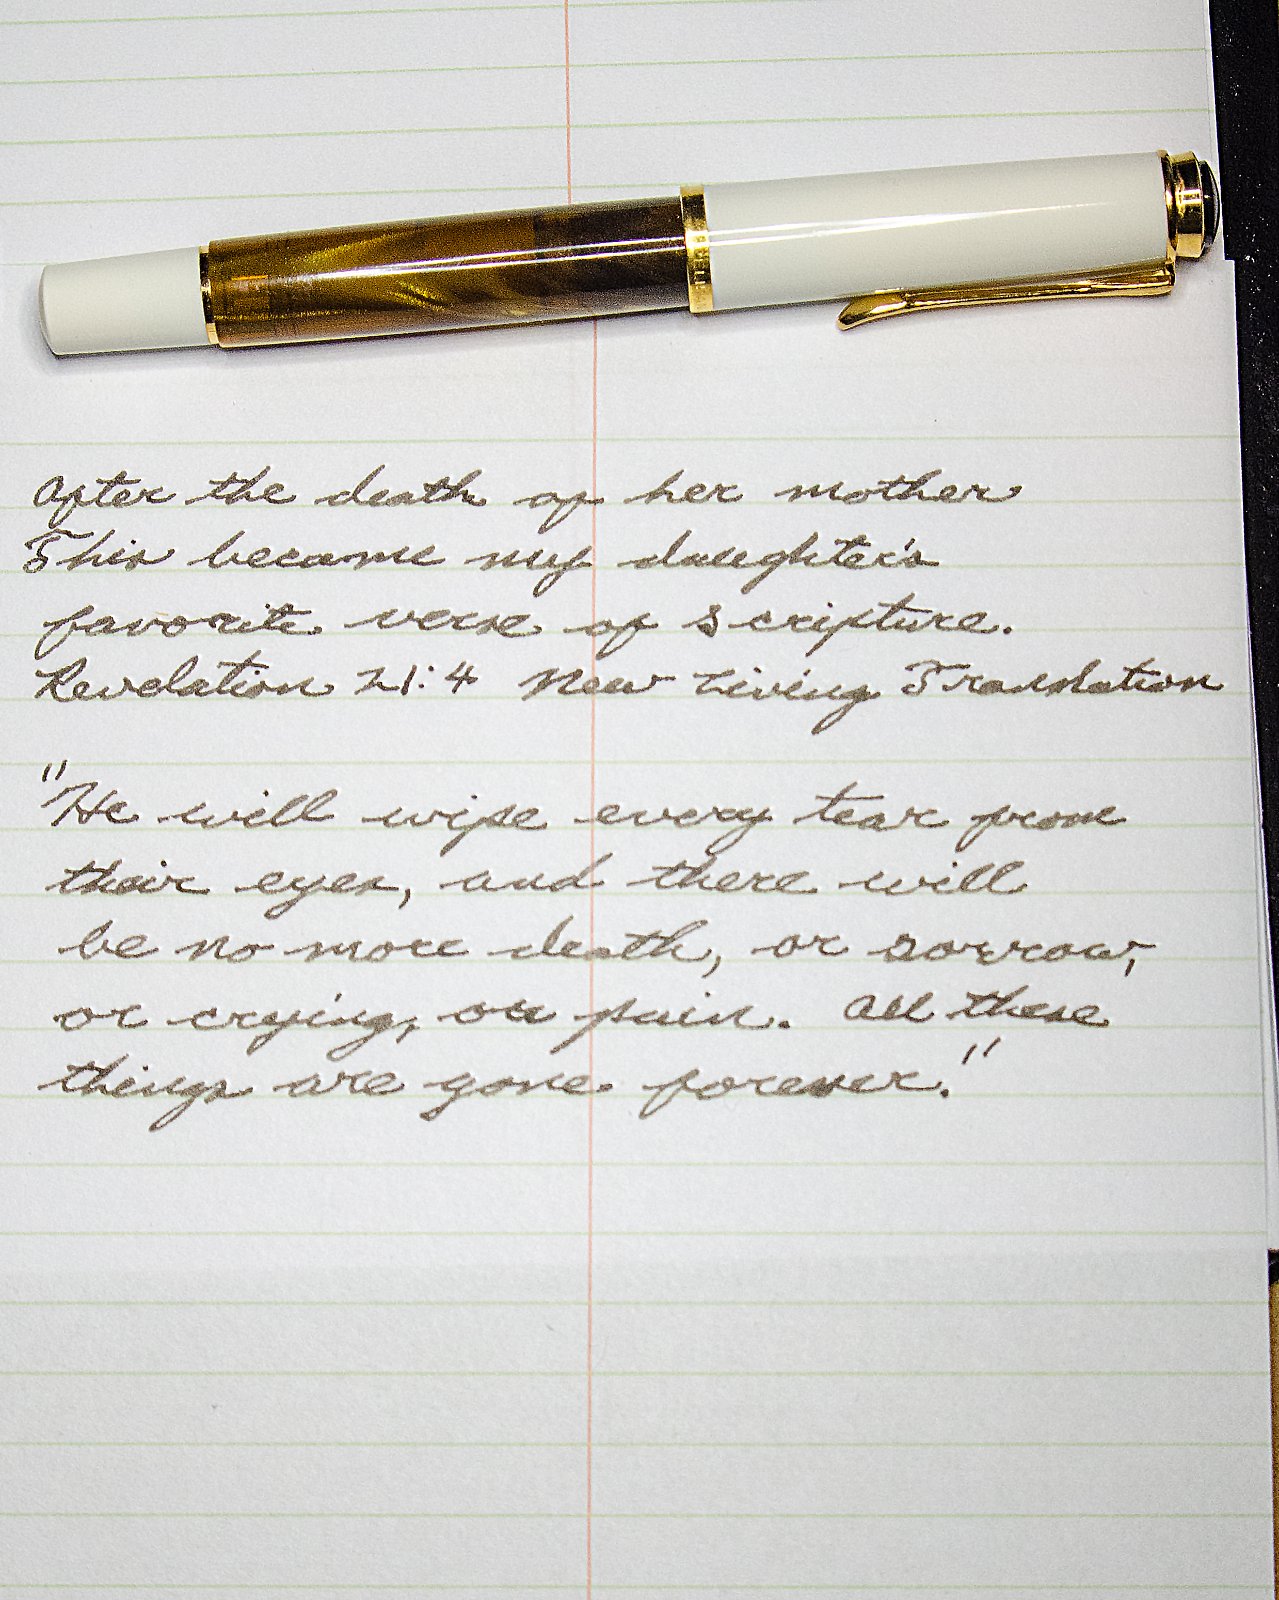 After the death of her mother
This became my daughter's
favorite verse of Scripture.
Revelation 21:4 New Living Translation
"He will wipe every tear from
their eyes, and there will
be no more death, or sorrow,
or crying, or pain. All these
things are gone forever."